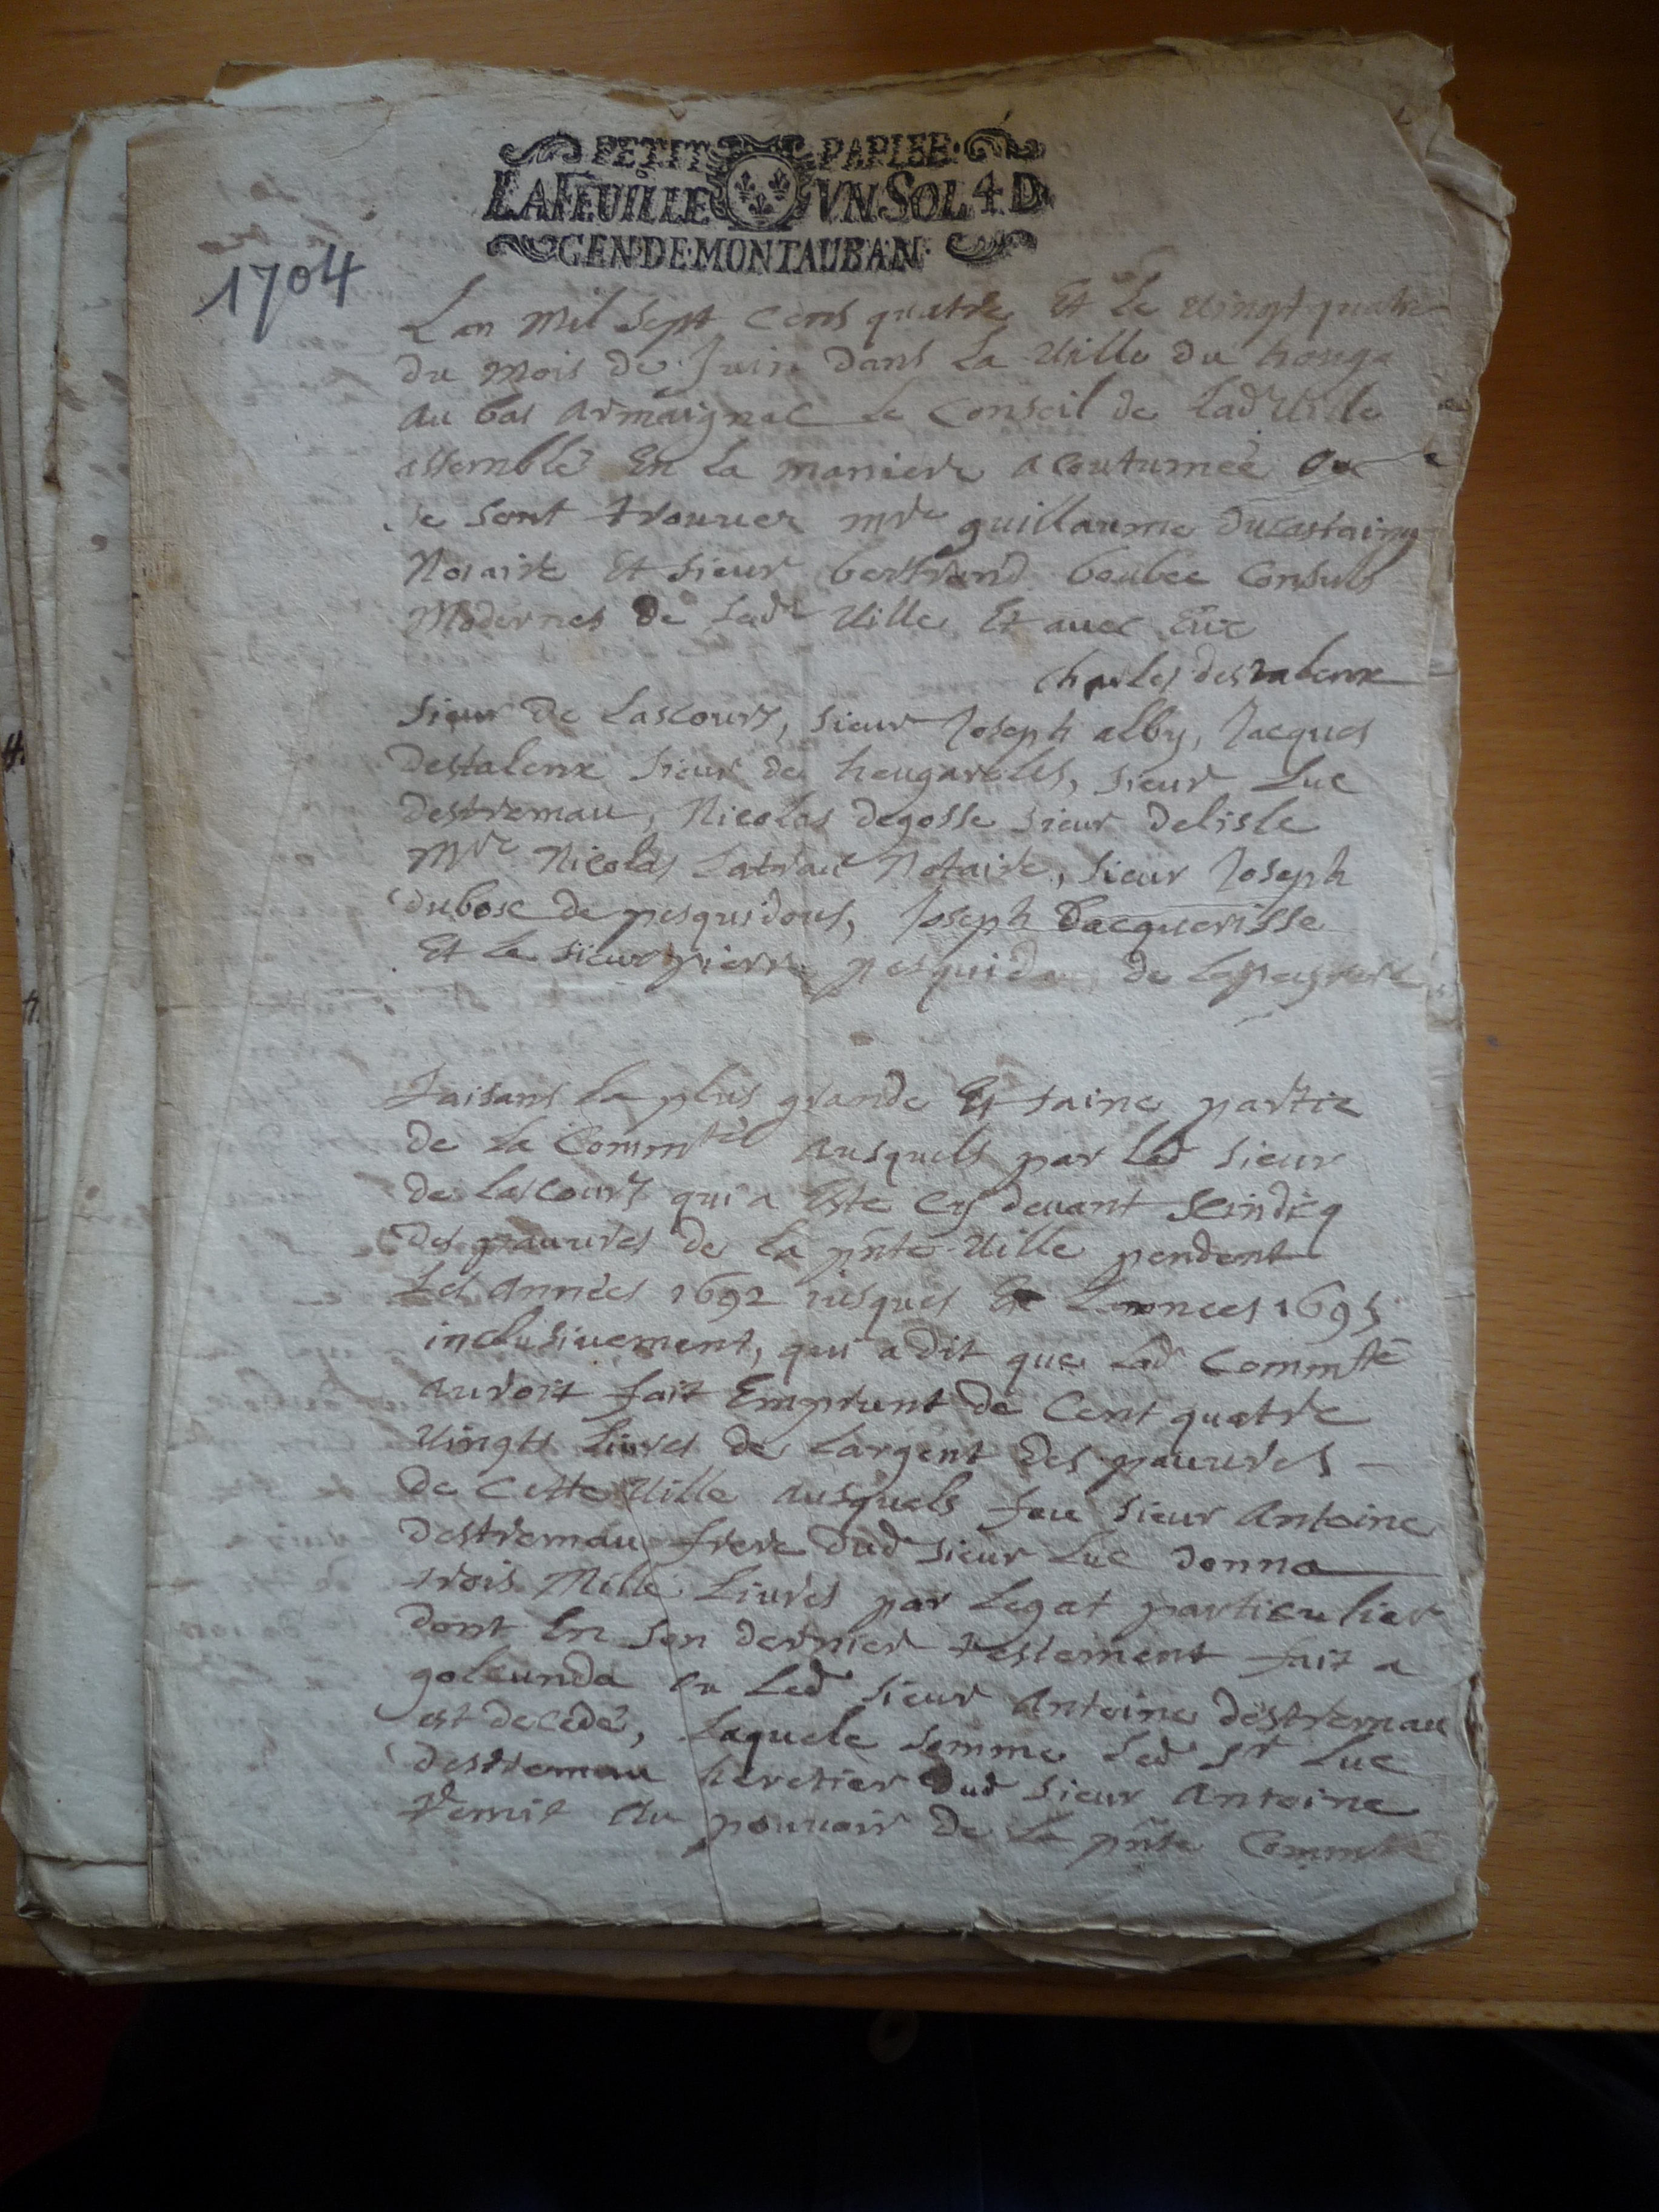 PETIT PAPIER
LA FEUILLE VN SOL 4 D
GEN·DE·MONTAUBAN·
1704
Lan mil sept cens quatre Et le vingt quatre
du mois de Juin dans La Ville du houga
au bas armaignac le Conseil de Lad Ville
assemblé En La maniere acoutumée
se sont trouver mre guillaume ducastaing
Notaire Et sieur bertrand boubee Consuls
Modernes de Lade Ville Et auec Eux
charles destalenx
sieur de Lascourt, sieur Joseph alby, Jacques
destalenx sieur de heugaroles, sieur Luc
destremau, Nicolas degosse sieur delisle
Mre Nicolas Latrau Notaire, sieur Joseph
dubosc de pesquidous, Joseph Dacquerisse
Et le sieur pierre pesquidou de Lapeyrere
faisans La plus grande Et saine partie
de La Commté ausquels par Led sieur
de Lascourt qui a Este Cy deuant scindicq
des pauures de La pñte Ville pendent
Les années 1692 jusques Lannees 1695
inclusiuement, qui a dit que Lad Commté
auroit fait Emprunt de Cent quatre
vingts Liures de Largent des pauures
de Cette Ville ausquels feu sieur Antoine
destremau frere dud sieur Luc donna
trois Mille Liures par Legat particulier
dont En son dernier testement fait a
golcunda ou Led sieur Antoine destremau
est decedé, Laquele somme Led sr Luc
destremau heretier dud sieur Antoine
remit Au pouuoir de La pñte Commté